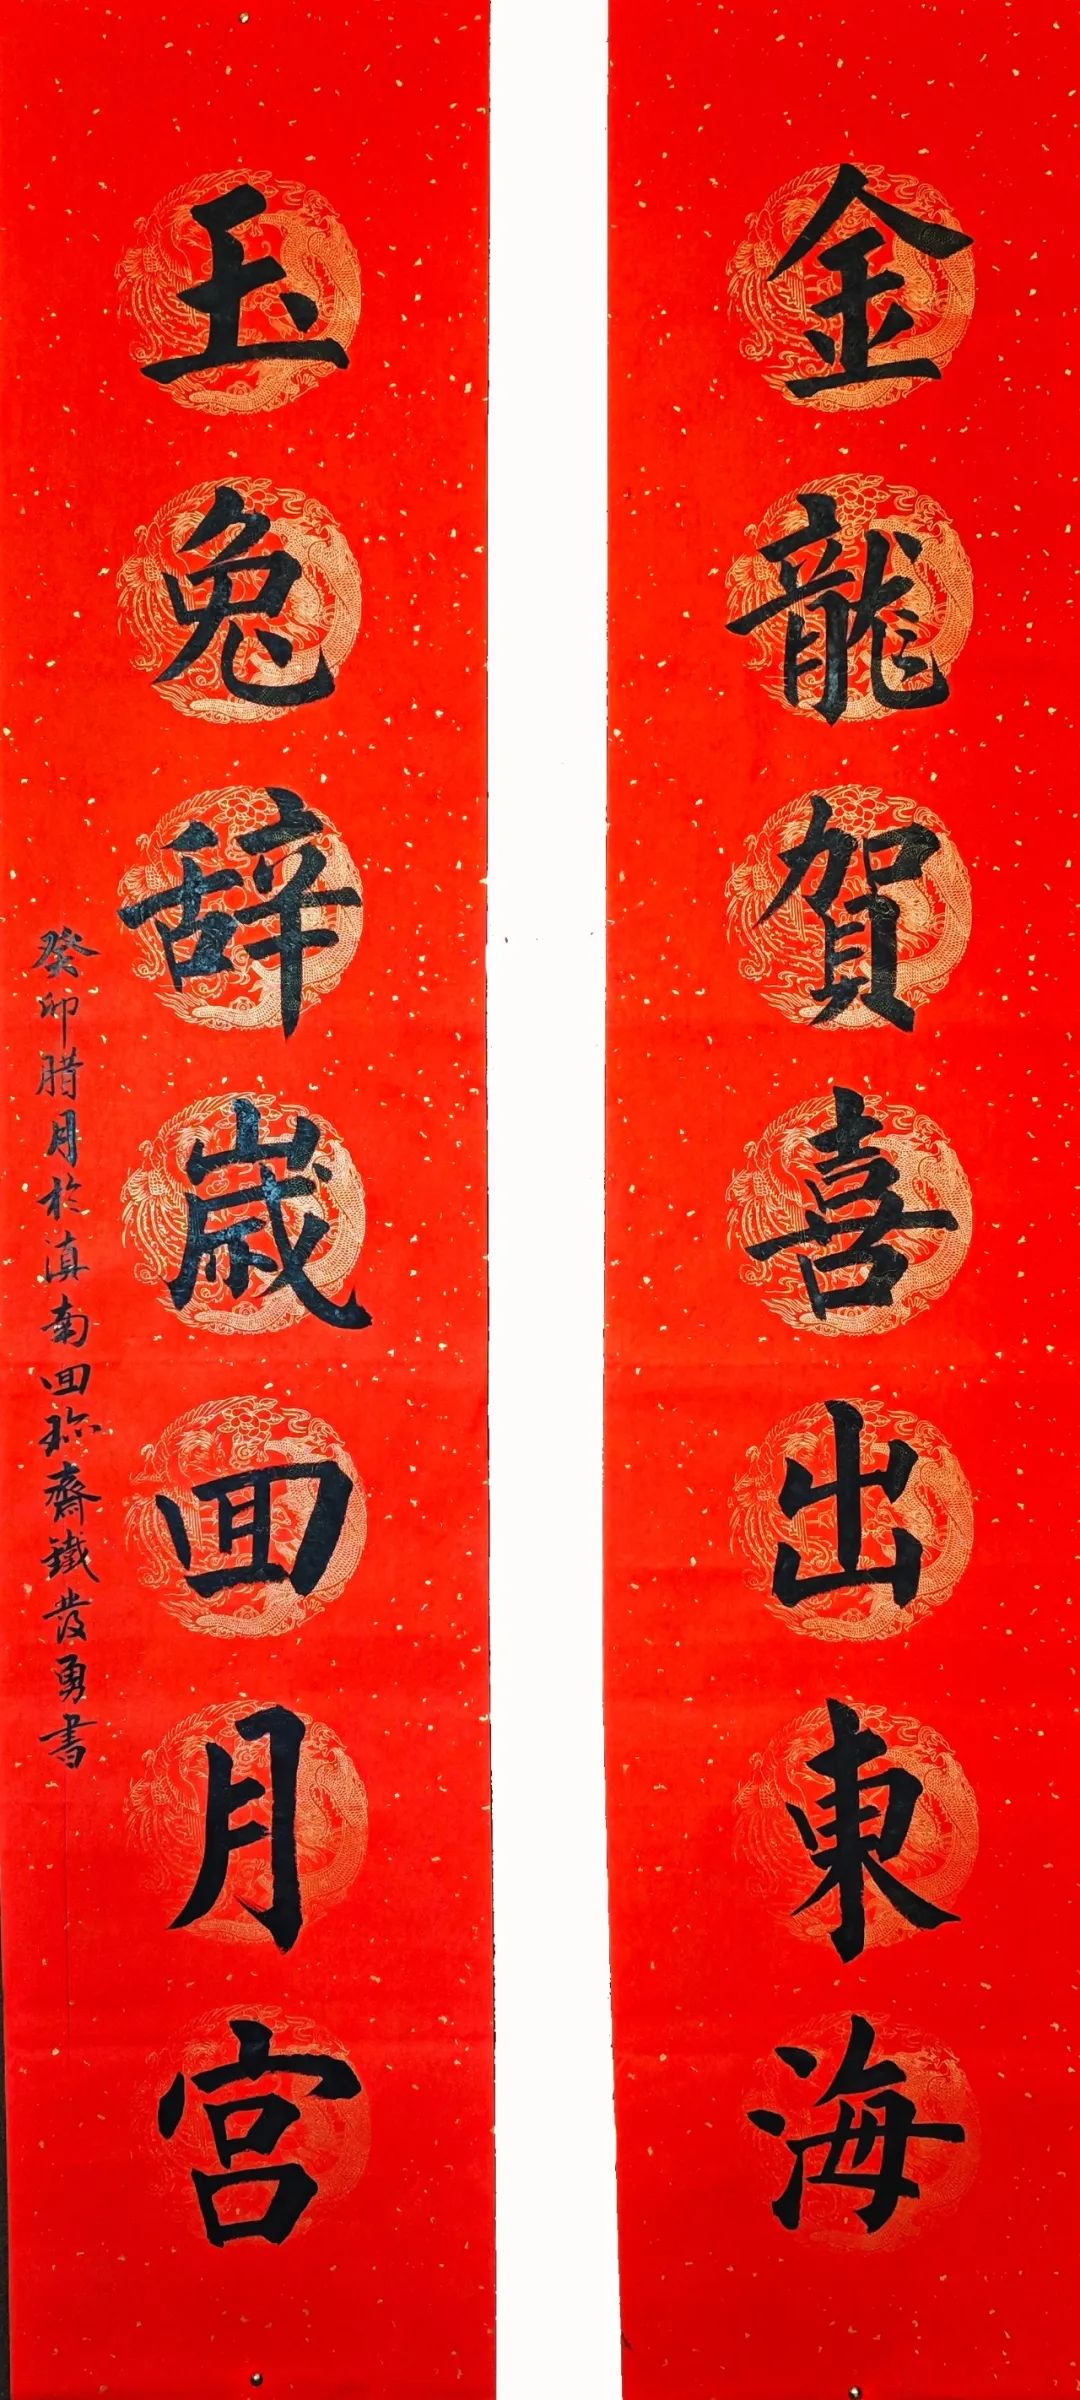 金龍賀喜出東海
玉兔辞歲回月宮
癸卯腊月於滇南回珎齋鐵發勇書